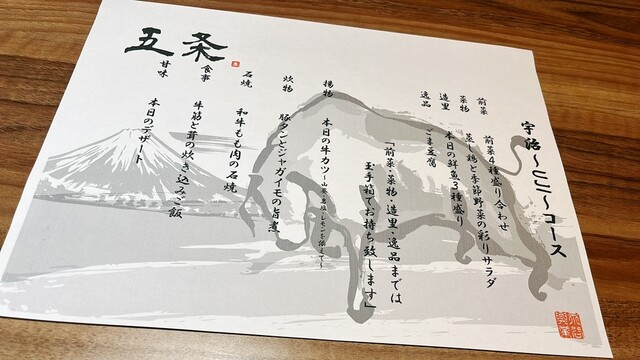 宇治 〜ここ〜コース
前菜 前菜4種盛り合わせ
菜物 蒸し鶏と季節野菜の彩りサラダ
造里 本日の鮮魚3種盛り
逸品 ごま豆腐
「前菜・菜物・造里・逸品までは
玉手箱でお持ち致します」
揚物 本日の牛カツ〜山葵・藻塩・レモンを添えて〜
炊物 豚タンとジャガイモの旨煮
石焼 和牛もも肉の石焼
食事 牛筋と茸の炊き込みご飯
甘味 本日のデザート
五条